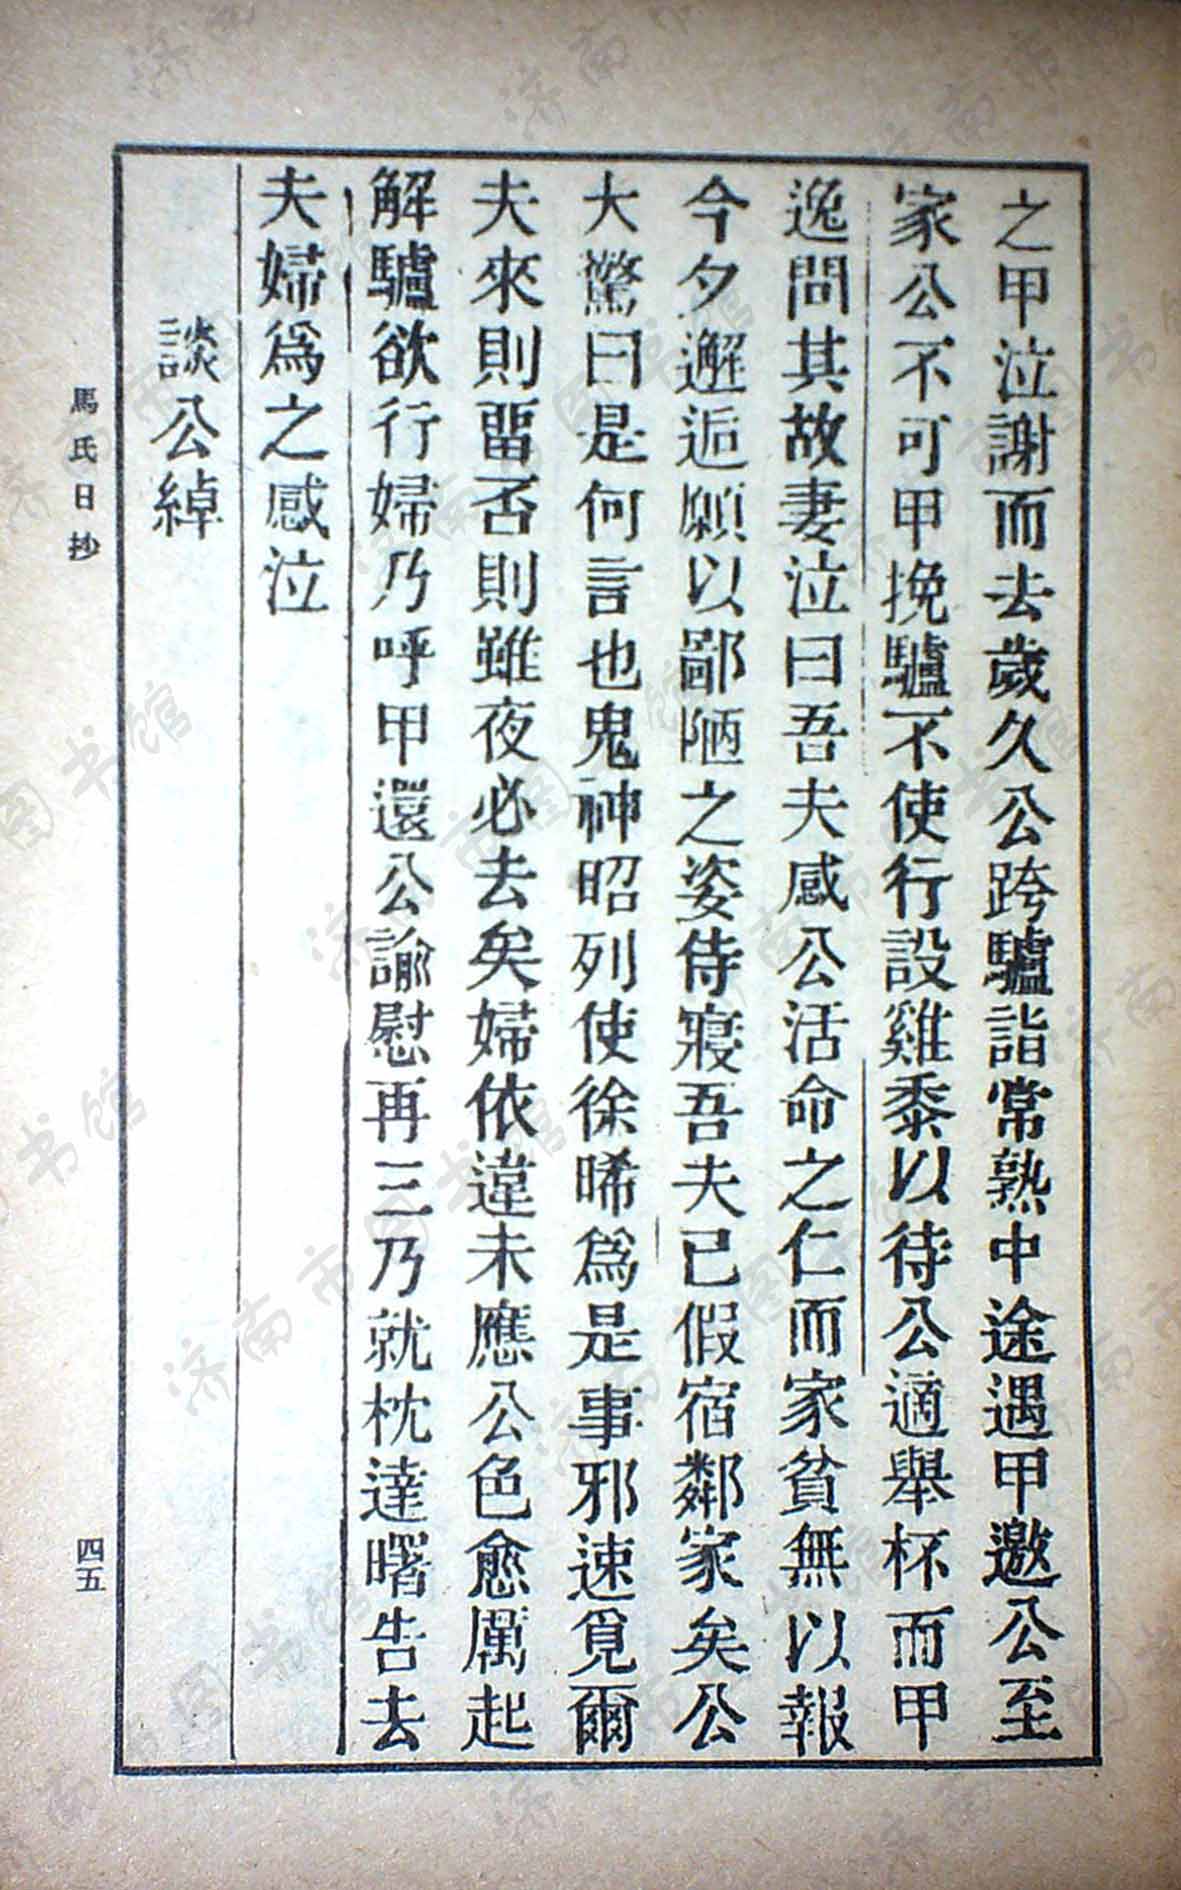 之甲泣謝而去歲久公跨驢詣常熟中途遇甲邀公至
家公不可甲挽驢不使行設雞黍以待公適舉杯而甲
逸問其故妻泣曰吾夫感公活命之仁而家貧無以報
今夕邂逅願以鄙陋之姿侍寢吾夫已假宿鄰家矣公
大驚曰是何言也鬼神昭列使徐晞為是事邪速覓爾
夫來則畱否則雖夜必去矣婦依違未應公色愈厲起
解驢欲行婦乃呼甲還公諭慰再三乃就枕達曙告去
夫婦爲之感泣
談公綽
馬氏日抄
四五
济南市图书馆